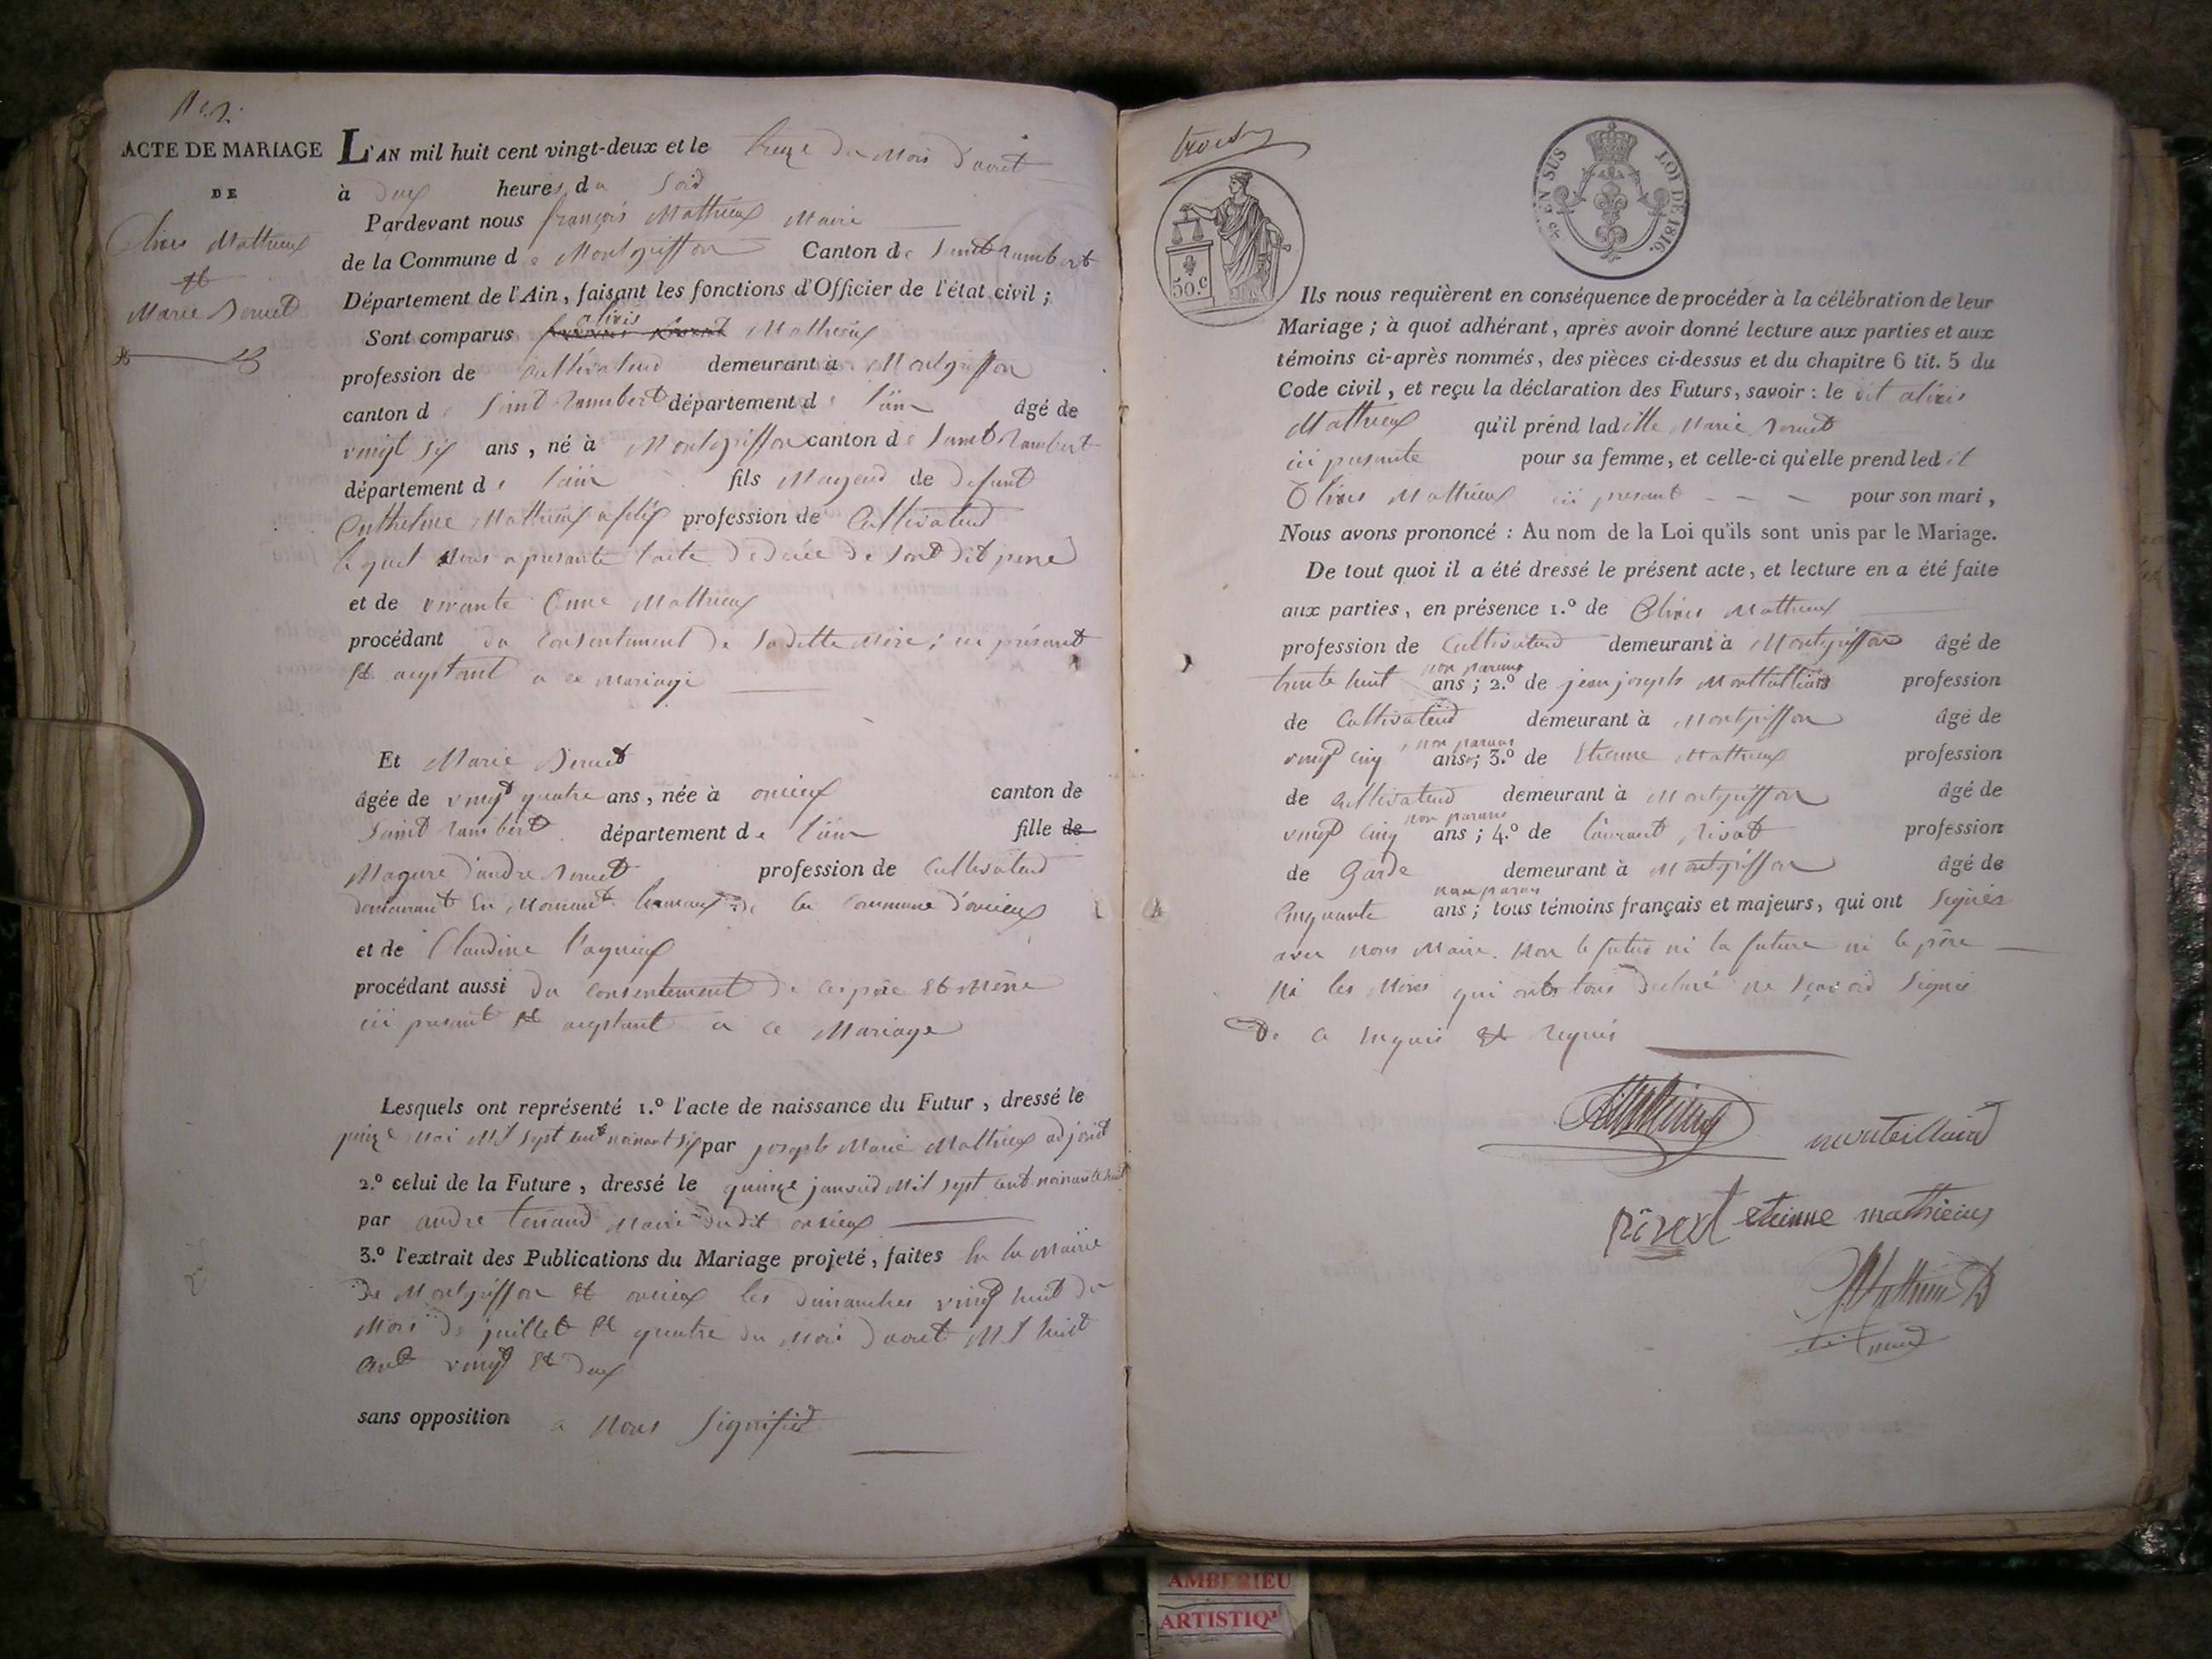 ACTE DE MARIAGE
DE
Mathieux
et
Marie
L'AN mil huit cent vingt-deux et le treize du Mois d'aout
à deux heures du Soir
Pardevant nous françois Mathieux Maire
de la Commune de Montgriffon Canton de Saint rambert
Département de l'Ain, faisant les fonctions d'Officier de l'état civil;
Sont comparus alixis Mathieux
profession de Cultivateur demeurant a Montgriffon
canton de Saint rambert département de l'ain âgé de
vingt six ans, né à Montgriffon canton de Saint Rambert
département de l'ain fils Mageur de defunt
Mathieux profession de Cultivateur
lequel Nous a presanté l'acte de decée de
et de vivante Mathieux
procédant du Consentement de Saditte Mère; ici présent
et aceptant a ce Mariage
Et Marie
âgée de vingt quatre ans, née à oncieux canton de
Saint rambert département de l'ain fille de
Mageure d'andre profession de Cultivateur
demeurant En hameau de la Commune d'oncieux
et de Claudine
procédant aussi du Consentement de Ces père et Mère
ici présent et aceptant a ce Mariage
Lesquels ont représenté 1.º l'acte de naissance du Futur, dressé le
Mai Mil Sept Cent noinant Six par joseph Marie Mathieux adjoint
2.º celui de la Future, dressé le quinze janvier Mil Sept Cent noinante huit
par andre Maire dudit oncieux
3.º l'extrait des Publications du Mariage projeté, faites En la Mairie
de Montgriffon et oncieux les dimanches vingt huit du
Mois de juillet et quatre du Mois d'aout Mil huit
Cent vingt et deux
sans opposition a Nous Signifié
trois
50.c
LOI DE 1816.
EN SUS
Ils nous requièrent en conséquence de procéder à la célébration de leur
Mariage; à quoi adhérant, après avoir donné lecture aux parties et aux
témoins ci-après nommés, des pièces ci-dessus et du chapitre 6 tit. 5 du
Code civil, et reçu la déclaration des Futurs, savoir: le dit alixis
Mathieux qu'il prénd laditte Marie
ici presante pour sa femme, et celle-ci qu'elle prend ledit
Mathieux ici presant - - - pour son mari,
Nous avons prononcé: Au nom de la Loi qu'ils sont unis par le Mariage.
De tout quoi il a été dressé le présent acte, et lecture en a été faite
aux parties, en présence 1.º de Mathieux
profession de Cultivateur demeurant à Montgriffon âgé de
trente huit ans non parans; 2.º de jean joseph profession
de Cultivateur demeurant à Montgriffon âgé de
vingt cinq ans non parans; 3.º de Etienne Mathieux profession
de Cultivateur demeurant à Montgriffon âgé de
vingt cinq ans non parans; 4.º de profession
de Garde demeurant à Montgriffon âgé de
Cinquante ans non parans; tous témoins français et majeurs, qui ont Signés
avec Nous Maire. Non le futur ni la future ni le père
Ni les Mères qui onts tous declaré ne Sçavoir Signer
De Ce enquis et requis
monteillard
etienne mathieux
AMBERIEU
ARTISTIQU